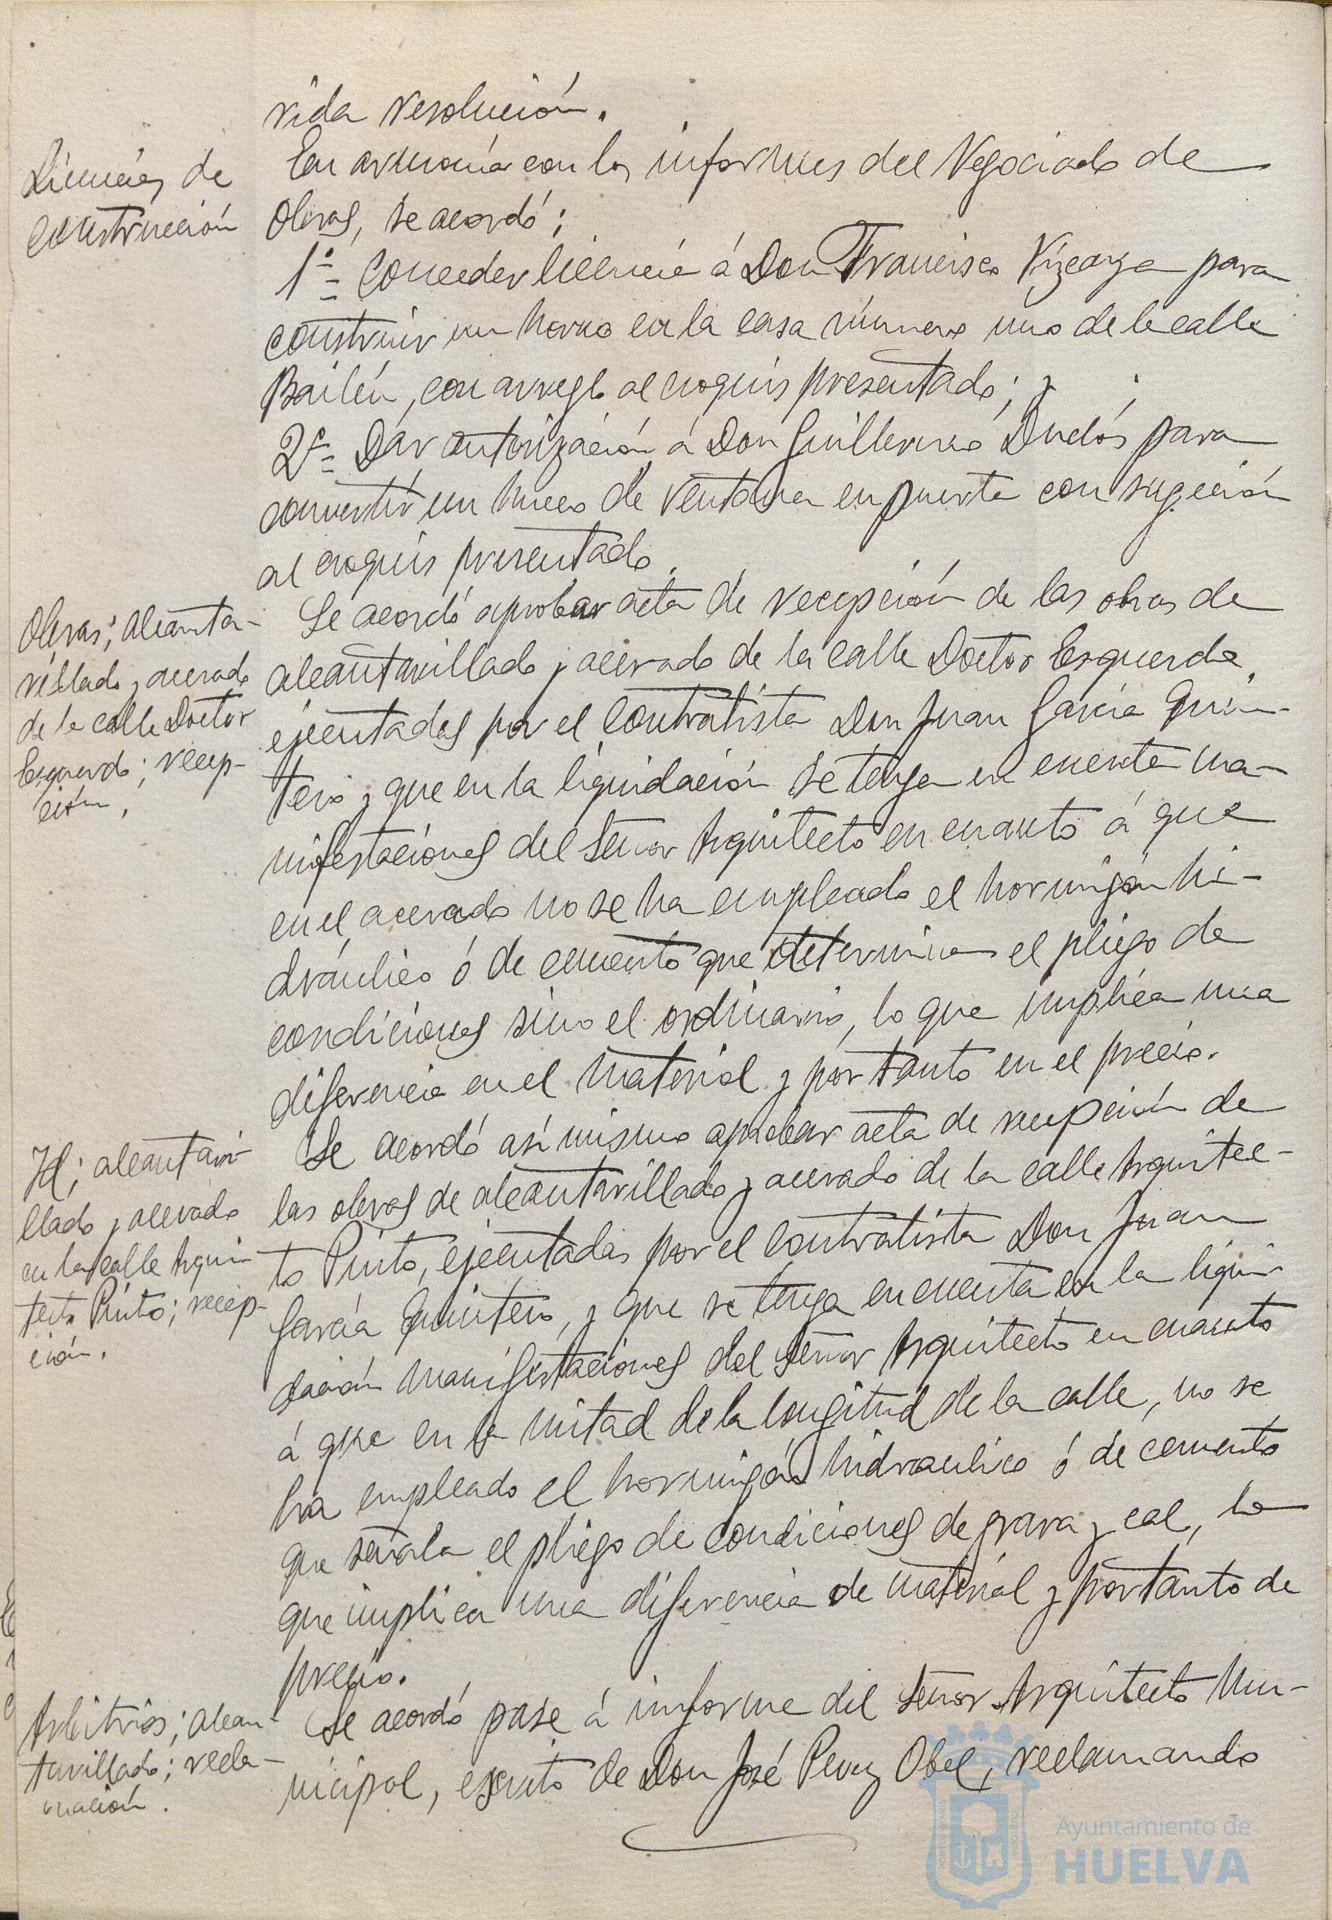 vida resolución.
Licencias de
construcción
En armonía con los informes del Negociado de
Obras, se acordó:
1º= Conceder licencia á Don Francisco Vizcaya para
construir un horno en la casa número uno de la calle
Bailén, con arreglo al croquis presentado; y
2º= Dar autorización á Don Guillermo Duclós para
convertir un hueco de ventana en puerta con sugeción
al croquis presentado.
Obras; alcanta-
rillado y acerado
de la calle Doctor
Esquerdo; recep-
ción.
Se acordó aprobar acta de recepción de las obras de
alcantarillado y acerado de la calle Doctor Esquerdo,
ejecutadas por el contratista Don Juan García Quin-
tero y que en la liquidación se tenga en cuenta ma-
nifestaciones del Señor Arquitecto en cuanto á que
en el acerado no se ha empleado el hormigón hi-
dráulico ó de cemento que determina el pliego de
condiciones sino el ordinario, lo que implica una
diferencia en el material y por tanto en el precio.
Id; alcantari-
llado y acerado
en la calle Arqui-
tecto Pinto; recep-
ción.
Se acordó asi mismo aprobar acta de recepción de
las obras de alcantarillado y acerado de la calle Arquitec-
to Pinto, ejecutadas por el contratista Don Juan
García Quintero, y que se tenga en cuenta en la liqui-
dación manifestaciones del Señor Arquitecto en cuanto
á que en la mitad de la longitud de la calle, no se
ha empleado el hormigón hidraulico ó de cemento
que señala el pliego de condiciones de grava y cal, lo
que implica una diferencia de material y por tanto de
precio.
Arbitrios; alcan-
tarillado; recla-
mación.
Se acordó pase á informe del Señor Arquitecto Mu-
nicipal, escrito de Don José Perez Obel, reclamando
Ayuntamiento de
HUELVA